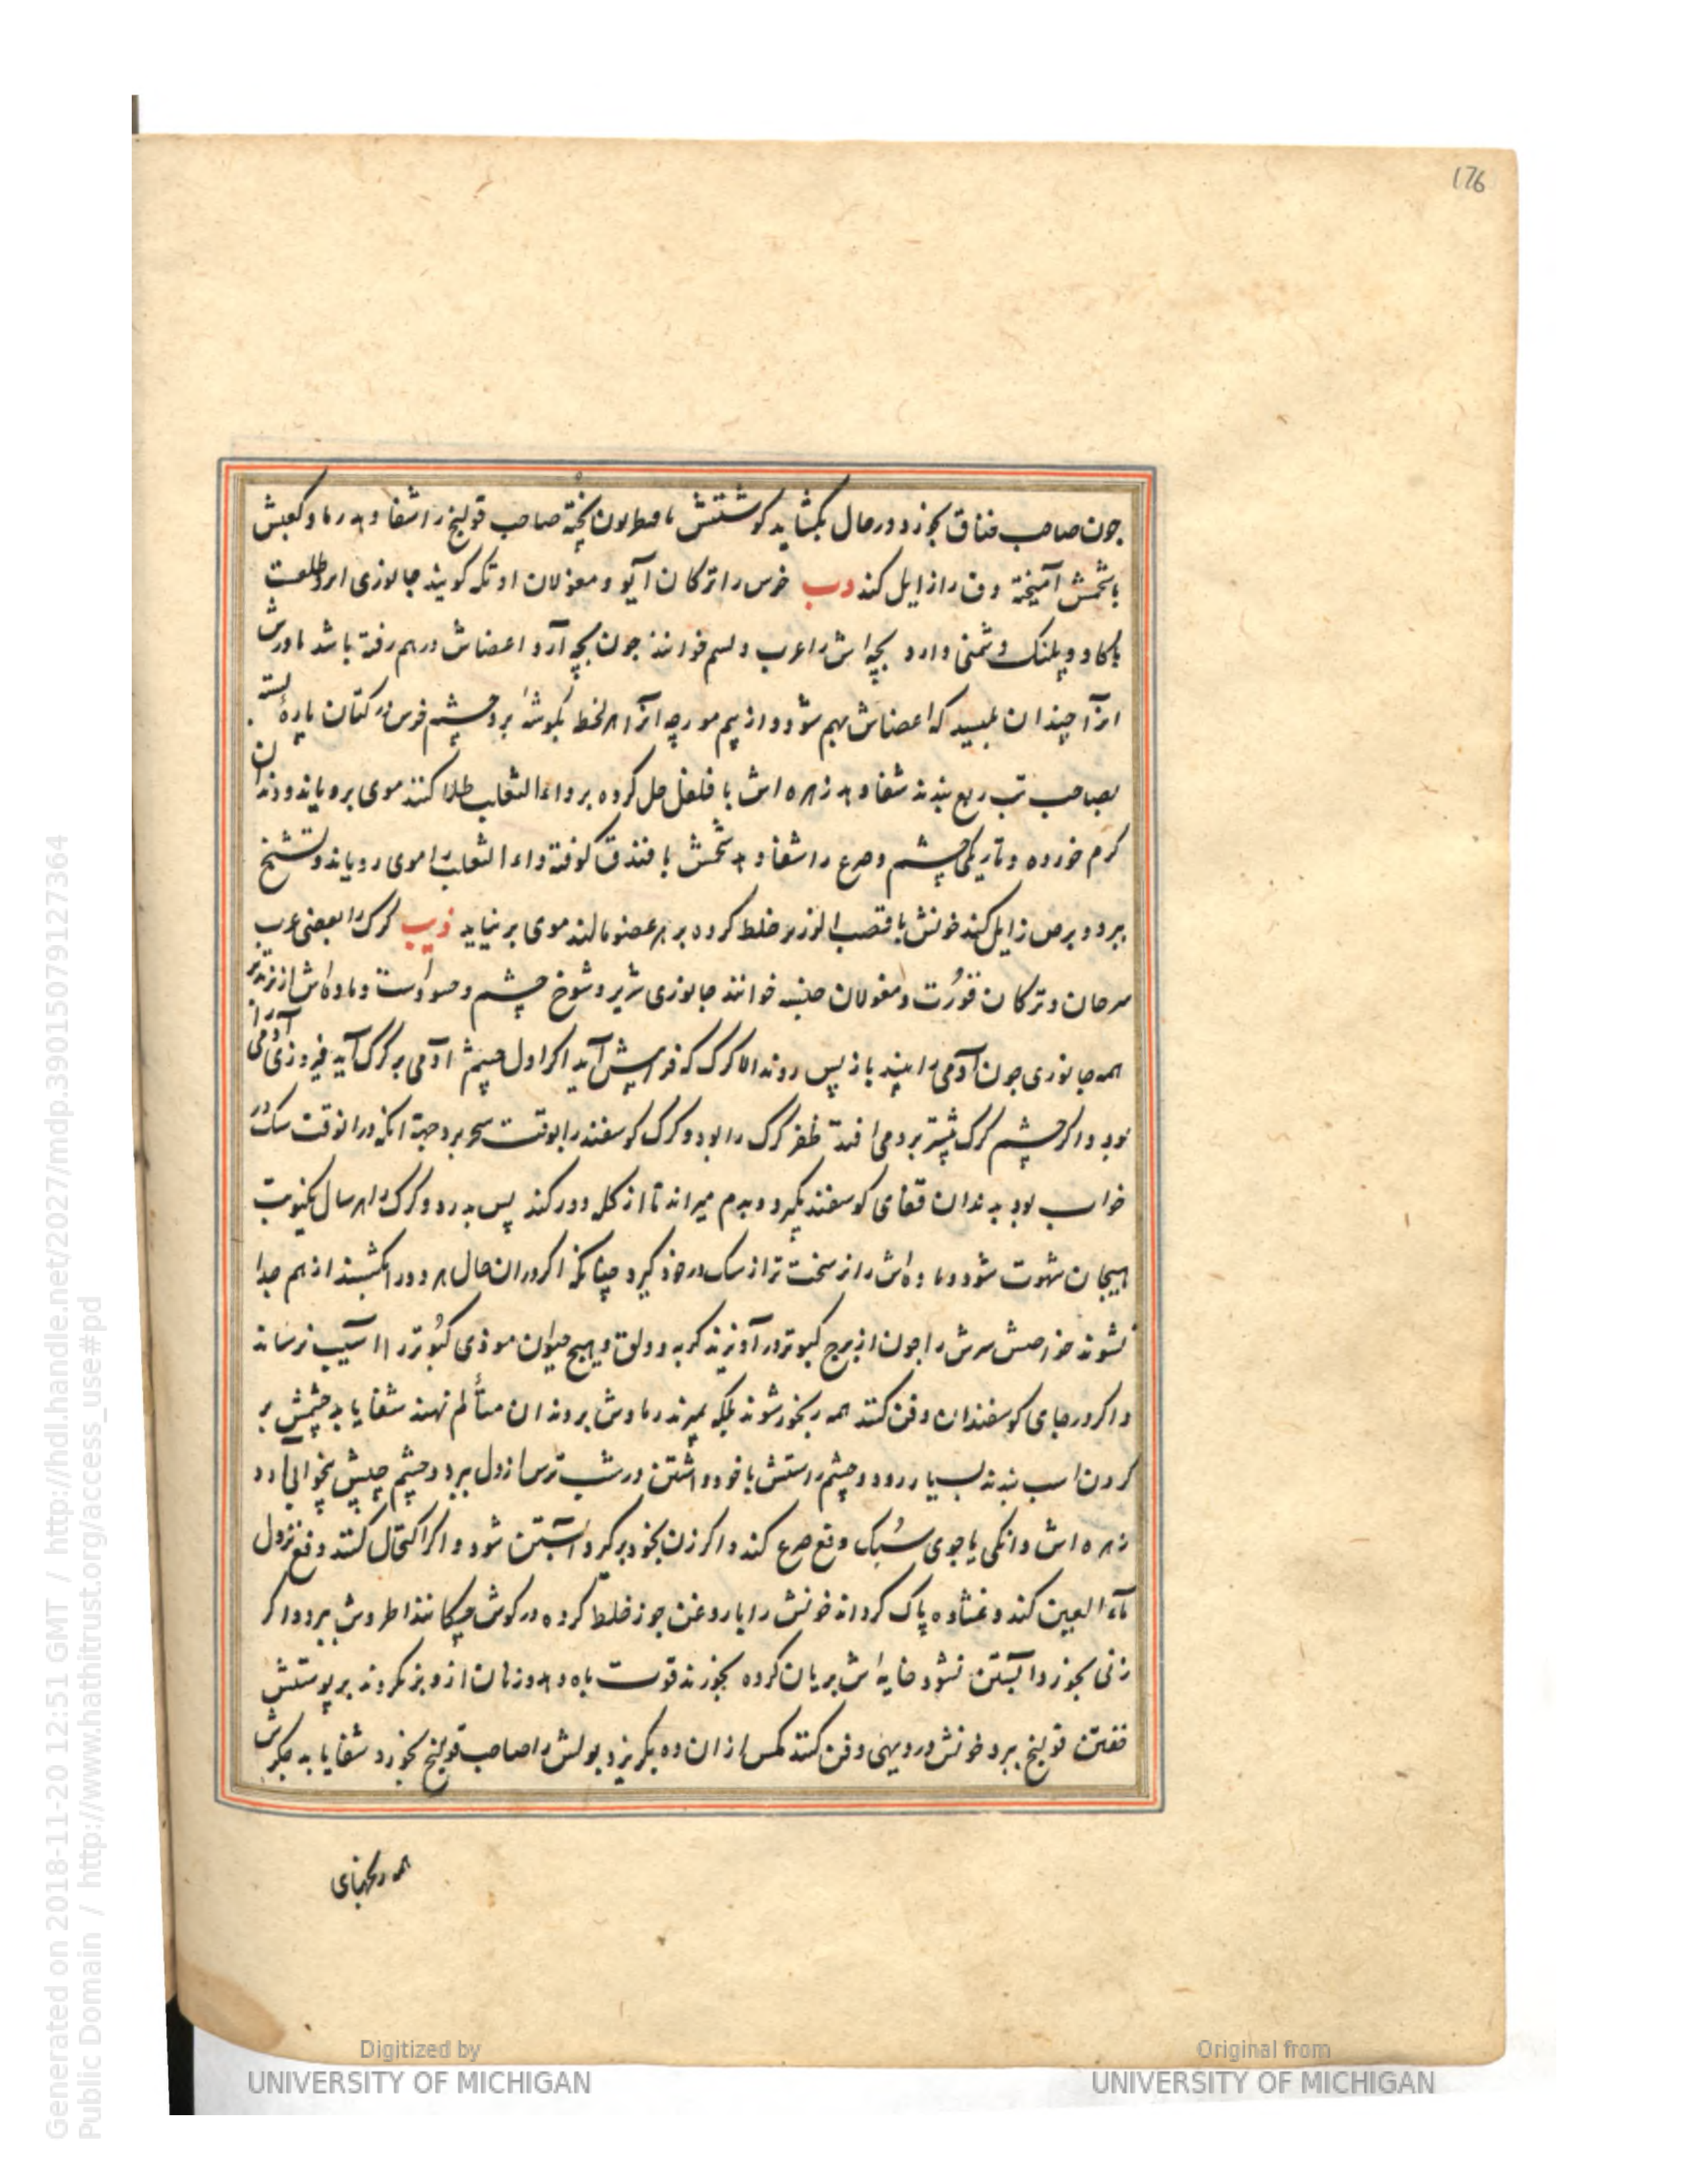 176
چون صاحب خناق بخورد در حال بگشاید گوشتش با پخته صاحب قولنج را شفا دهد رماد کعبش
با شحمش آمیخته را زایل کند دب خرس را ترکان آیو و مغولان اوتکه گویند جانوری امرد طلعت
با گاو و پلنگ دشمنی دارد بچه اش را عرب دلسم خوانند چون بچه آرد اعضاش درهم رفته باشد مادرش
انرا چندان بلیسد که اعضاش بهم شود و از بیم مورچه انرا هر لحظه بگوشه برد چشم خرس در کتان پاره بسته
بصاحب تب ربع بندند شفا دهد زهره اش با فلفل حل کرده بر داءالثعلب طلا کنند موی برویاند و دندان
کرم خورده و تاریکی چشم و صرع را شفا دهد شحمش با فندق کوفته داءالثعلب را موی رویاند و تشنج
ببرد و برص زایل کند خونش با قصب خلط کرده بر هر عضو مالند موی برنیاید ذیب گرگ را بعضی عرب
سرحان و ترکان قورت و مغولان چنه خوانند جانوری شریر و شوخ چشم و حسودست و ماده اش از نر تندتر
همه جانوری چون آدمی را بیند باز پس روند الا گرگ که فرا پیش آید اگر اول چشم آدمی بر گرگ آید فیروزی آدمی را
بود و اگر چشم گرگ پیشتر بر ادمی افتد ظفر گرگ را بود و گرگ گوسفند را بوقت سحر برد جهة انکه در انوقت سگ در
خواب بود بدندان قفای گوسفند بگیرد و بدم میراند تا از گله دور کند پس بدرد و گرگ را هر سال یکنوبت
هیجان شهوت شود و ماده اش را نر سخت تر از سگ در خود گیرد چنانکه اگر در ان حال هر دو را بکشند از هم جدا
نشوند خواصش سرش را چون از برج کبوتر در آویزند گربه و دلق و هیچ حیوان موذی کبوتر را آسیب نرساند
و اگر در جای گوسفندان دفن کنند همه رنجور شوند بلکه بمیرند رمادش بر دندان متألم نهند شفا یابد چشمش بر
گردن اسب بندند بسیار رود و چشم راستش با خود داشتن در شب ترس از دل ببرد و چشم چپش بیخوابی آرد
زهره اش دانگی یا جوی سبک دفع صرع کند و اگر زن بخود برگیرد آبستن شود و اگر اکتحال کنند دفع نزول
ماءالعین کند و غشاوه پاک کرداند خونش را با روغن جوز خلط کرده در گوش چکانند اطروش ببرد و اگر
زنی بخورد آبستن نشود خایه اش بریان کرده بخورند قوت باه دهد و زنان ازو بر نگردند بر پوستش
خفتن قولنج ببرد خونش در دیهی دفن کنند مگس از ان ده بگریزد بولش را صاحب قولنج بخورد شفا یابد جگرش
همه
Digitized by
UNIVERSITY OF MICHIGAN
Original from
UNIVERSITY OF MICHIGAN
Generated on 2018-11-20 12:51 GMT / http://hdl.handle.net/2027/mdp.39015079127364
Public Domain / http://www.hathitrust.org/access_use#pd